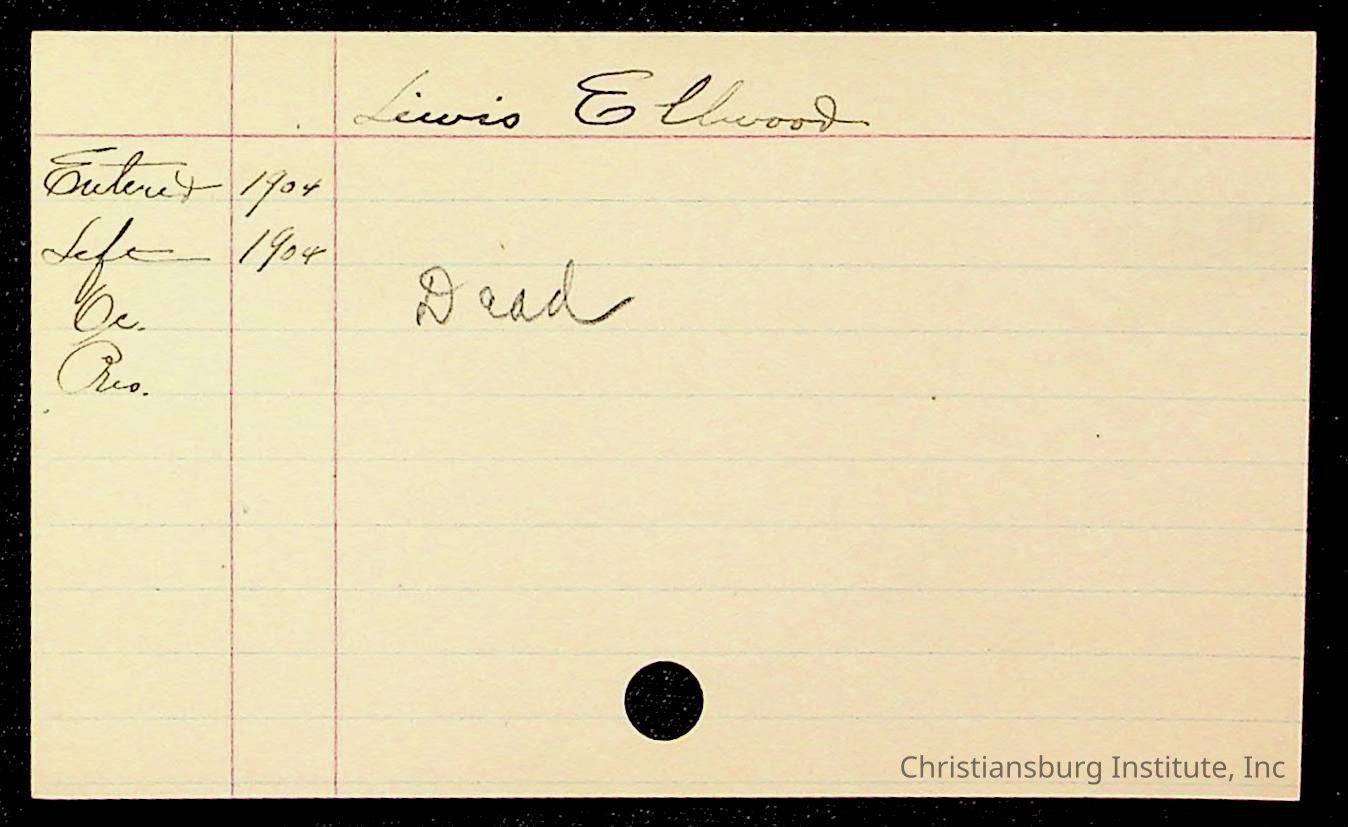 Lewis Ellwood
Entered 1904
Left 1904
Oc.
Dead
Pres.
Christiansburg Institute, Inc